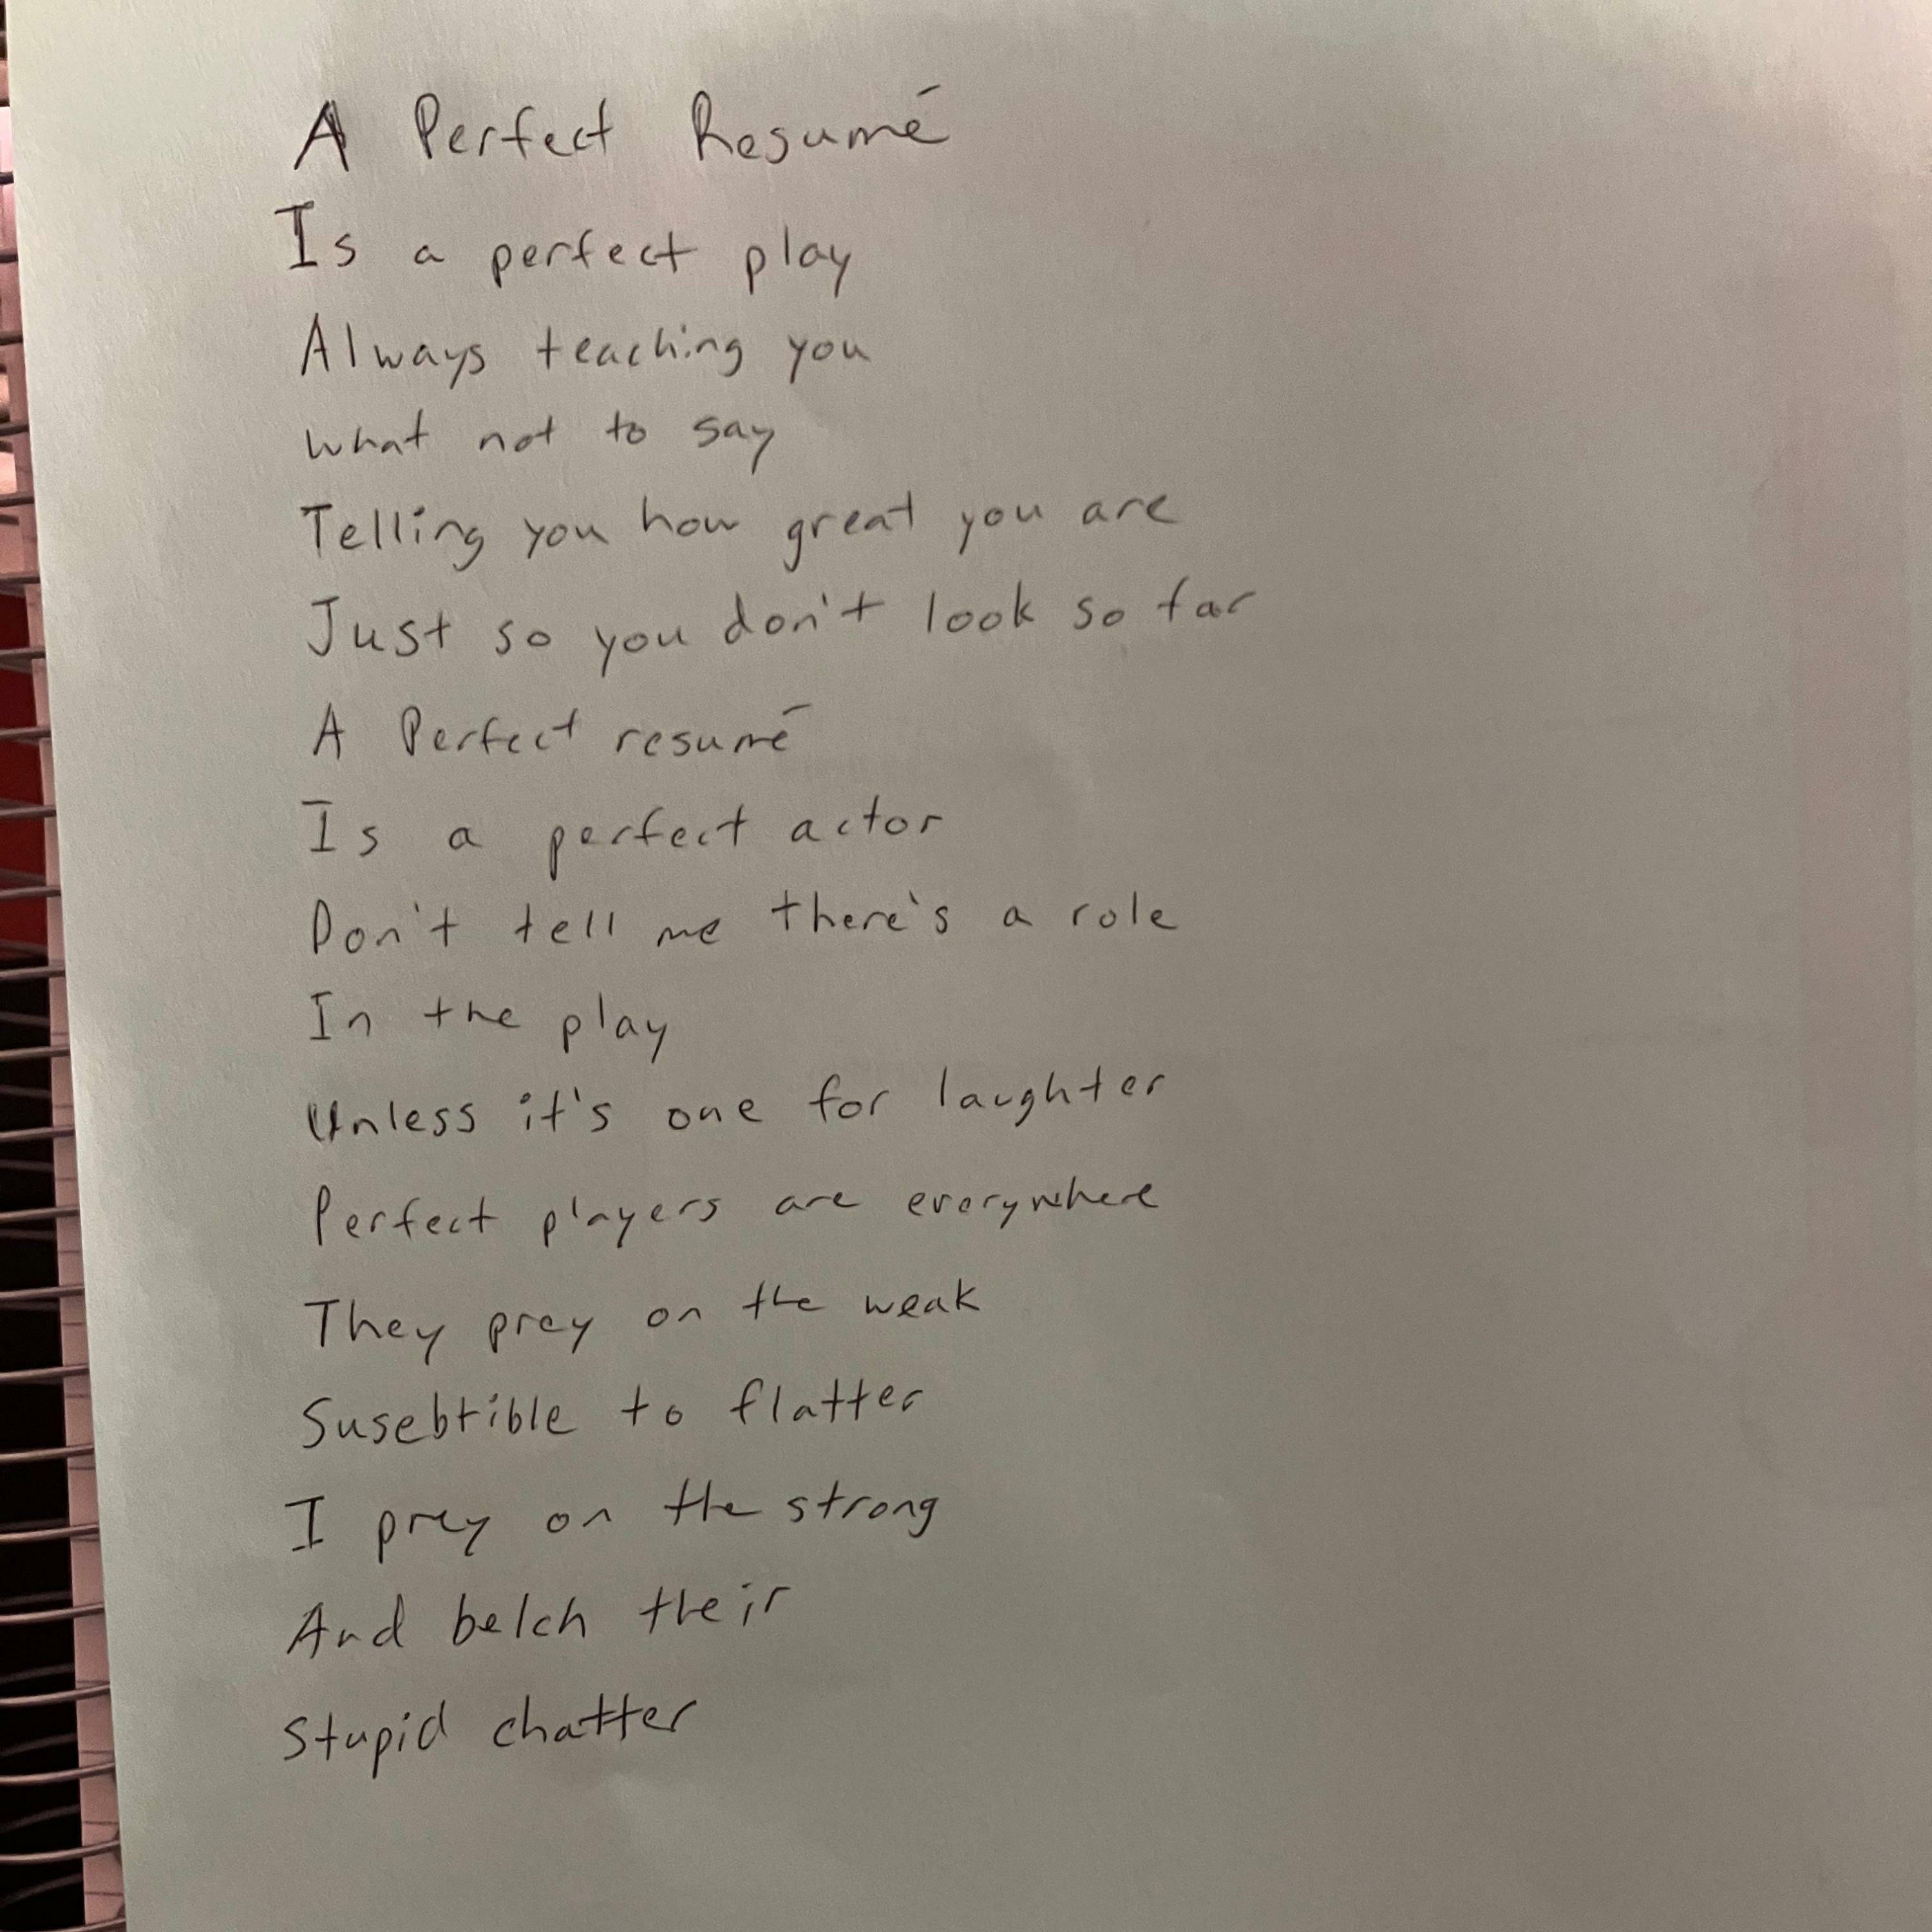 A Perfect Resumé
Is a perfect play
Always teaching you
what not to say
Telling you how great you are
Just so you don't look so far
A Perfect resumé
Is a perfect actor
Don't tell me there's a role
In the play
Unless it's one for laughter
Perfect players are everywhere
They prey on the weak
Susebtible to flatter
I prey on the strong
And belch their
Stupid chatter